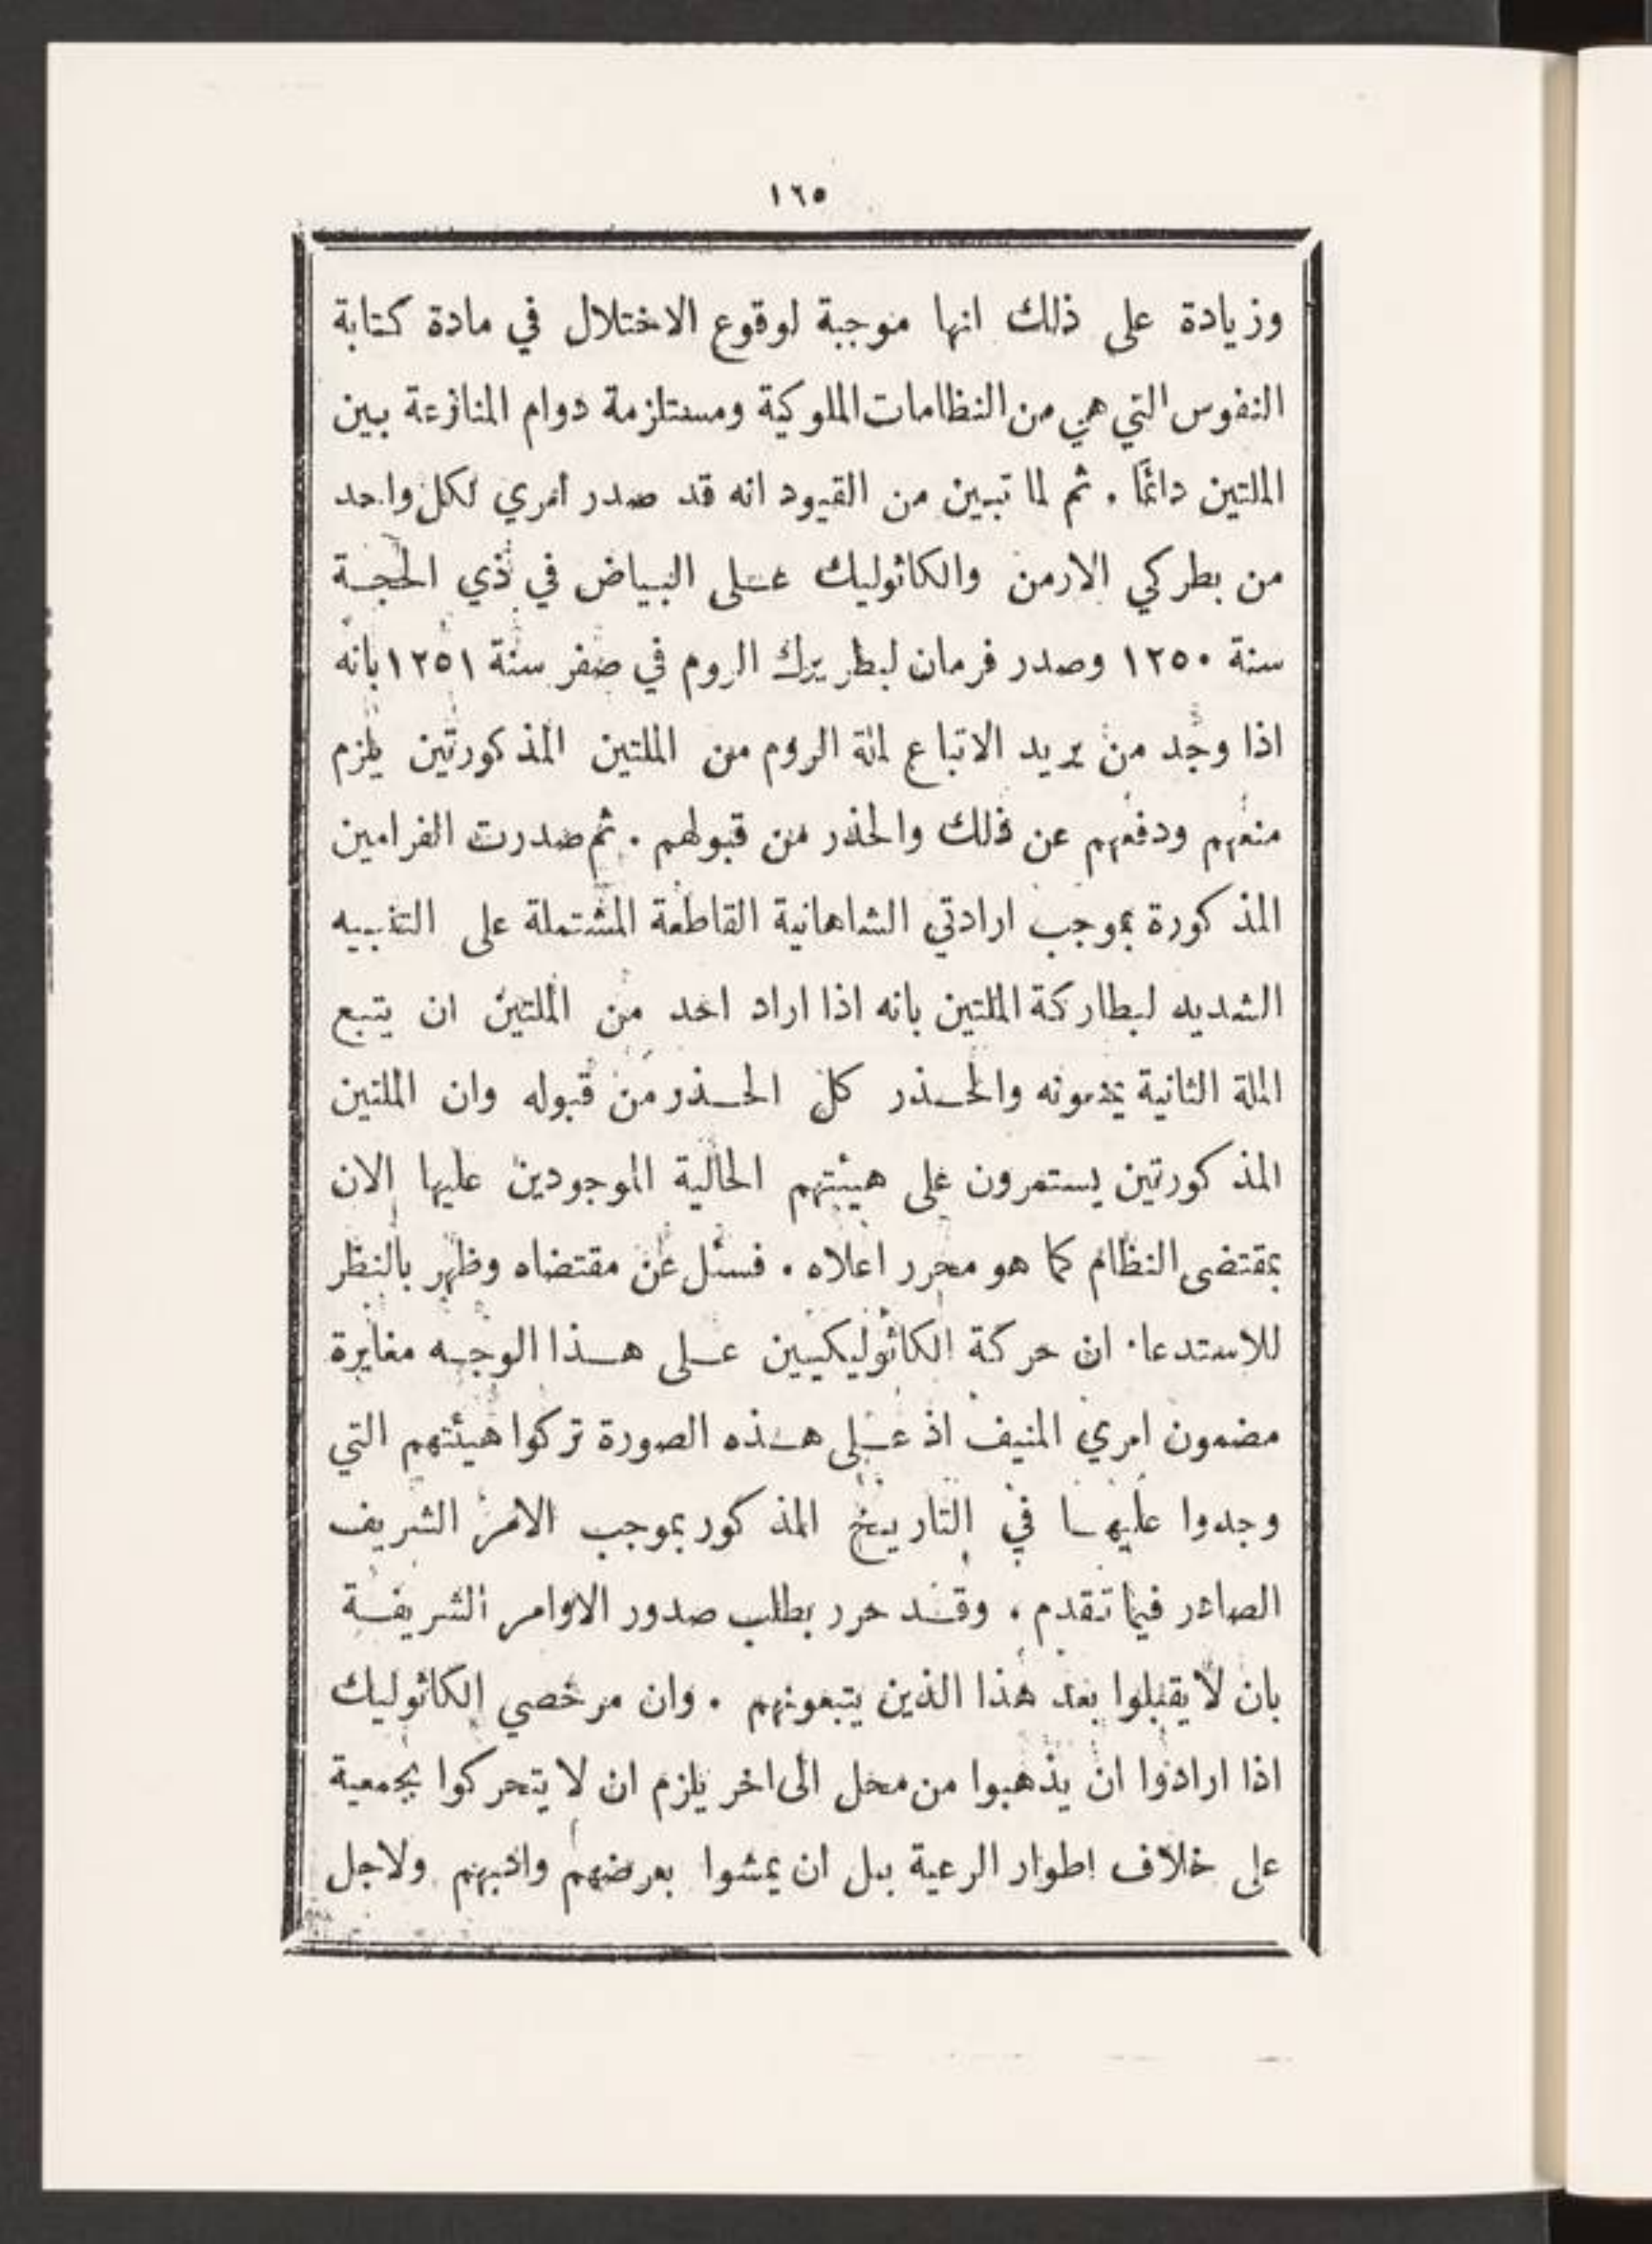 ١٦٥
وزيادة على ذلك انها موجبة لوقوع الاختلال في مادة كتابة
النفوس التي هي من النظامات الملوكية ومستلزمة دوام المنازعة بين
الملتين دائمًا . ثم لما تبين من القيود انه قد صدر امري لكل واحد
من بطركي الارمن والكاثوليك على البياض في ذي الحجة
سنة ١٢٥٠ وصدر فرمان لبطريرك الروم في صفر سنة ١٢٥١ بانه
اذا وجد من يريد الاتباع لملة الروم من الملتين المذكورتين يلزم
منعهم ودفعهم عن ذلك والحذر من قبولهم . ثم صدرت الفرامين
المذكورة بموجب ارادتي الشاهانية القاطعة المشتملة على التنبيه
الشديد لبطاركة الملتين بانه اذا اراد احد من الملتين ان يتبع
الملة الثانية يمنعونه والحذر كل الحذر من قبوله وان الملتين
المذكورتين يستمرون على هيئتهم الحالية الموجودين عليها الان
بمقتضى النظام كما هو محرر اعلاه . فسئل عن مقتضاه وظهر بالنظر
للاستدعاء ان حركة الكاثوليكيين على هذا الوجه مغايرة
مضمون امري المنيف اذ على هذه الصورة تركوا هيئتهم التي
وجدوا عليها في التاريخ المذكور بموجب الامر الشريف
الصادر فيما تقدم . وقد حرر بطلب صدور الاوامر الشريفة
بان لا يقبلوا بعد هذا الذين يتبعونهم . وان مرخصي الكاثوليك
اذا ارادوا ان يذهبوا من محل الى اخر يلزم ان لا يتحركوا بجمعية
على خلاف اطوار الرعية بل ان يمشوا بعرضهم وادبهم ولاجل